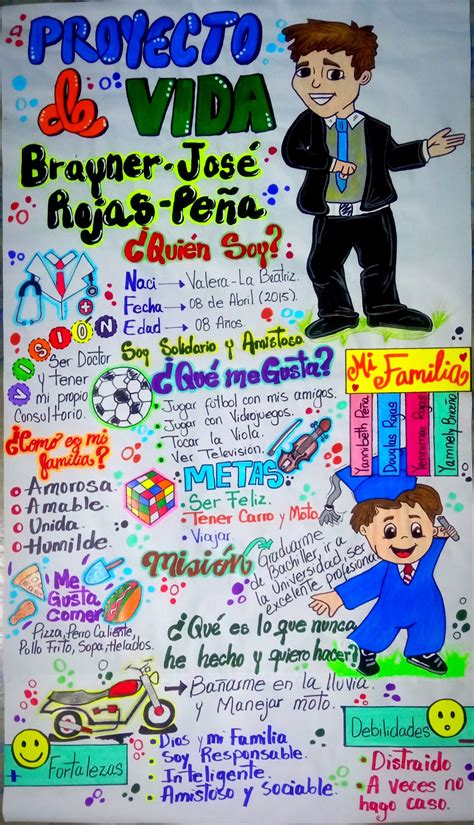 PROYECTO
de VIDA
Brayner-José
Rojas-Peña
¿Quién Soy?
Naci → Valera-La Beatriz.
Fecha → 08 de Abril (2015).
Edad → 08 Años.
Soy Solidario y Amistoso.
VISIÓN
Ser Doctor
y Tener
mi propio
Consultorio.
¿Qué me Gusta?
• Jugar fútbol con mis amigos.
• Jugar con Videojuegos.
• Tocar la Viola.
• Ver Televisión.
Mi
Familia
Yannibeth Peña
Douglas Rojas
Rojas
Yannely Briceño
¿Como es mi
familia?
Amorosa.
Amable.
Unida.
Humilde.
METAS
• Ser Feliz.
• Tener Carro y Moto.
• Viajar.
Misión
Graduarme
de Bachiller, ir a
la Universidad, ser
excelente profesional
Me
Gusta
Comer
Pizza, Perro Caliente,
Pollo Frito, Sopa, Helados.
¿Qué es lo que nunca
he hecho y quiero hacer?
→ Bañarme en la lluvia
y Manejar moto.
+ Fortalezas
• Dios y mi Familia
• Soy Responsable.
• Inteligente.
• Amistoso y Sociable.
Debilidades
• Distraido
• A veces no
hago caso.